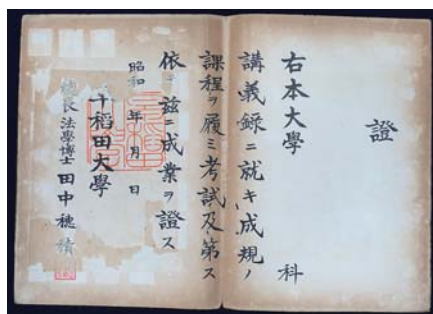 證
右本大學 科
講義録ニ就キ成規ノ
課程ヲ履ミ考試及第ス
依テ茲ニ成業ヲ證ス
昭和 年 月 日
稲田大學
總長 法學博士 田中穗積